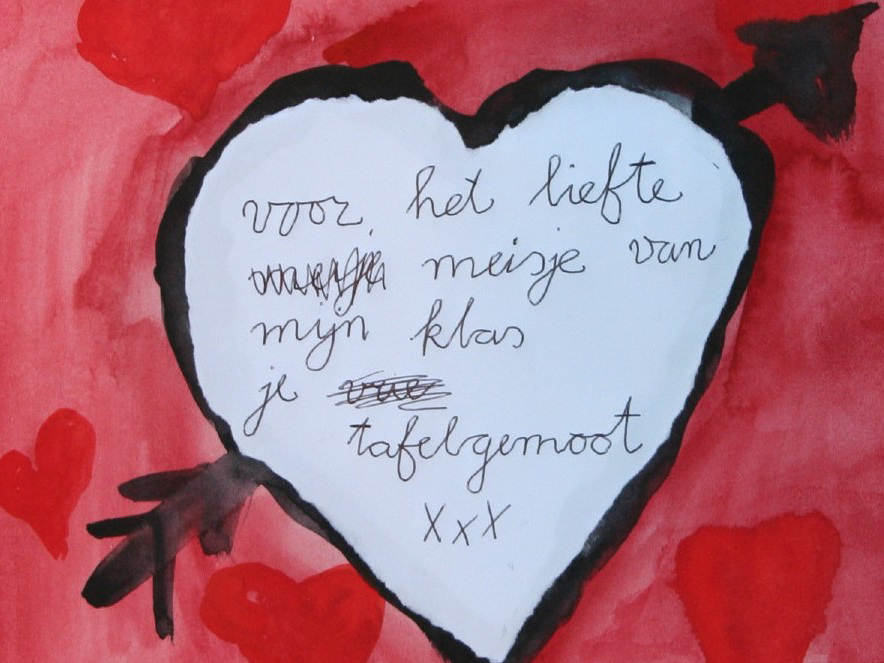 voor het liefte
meisje van
mijn klas
je
tafelgemoot
XxX